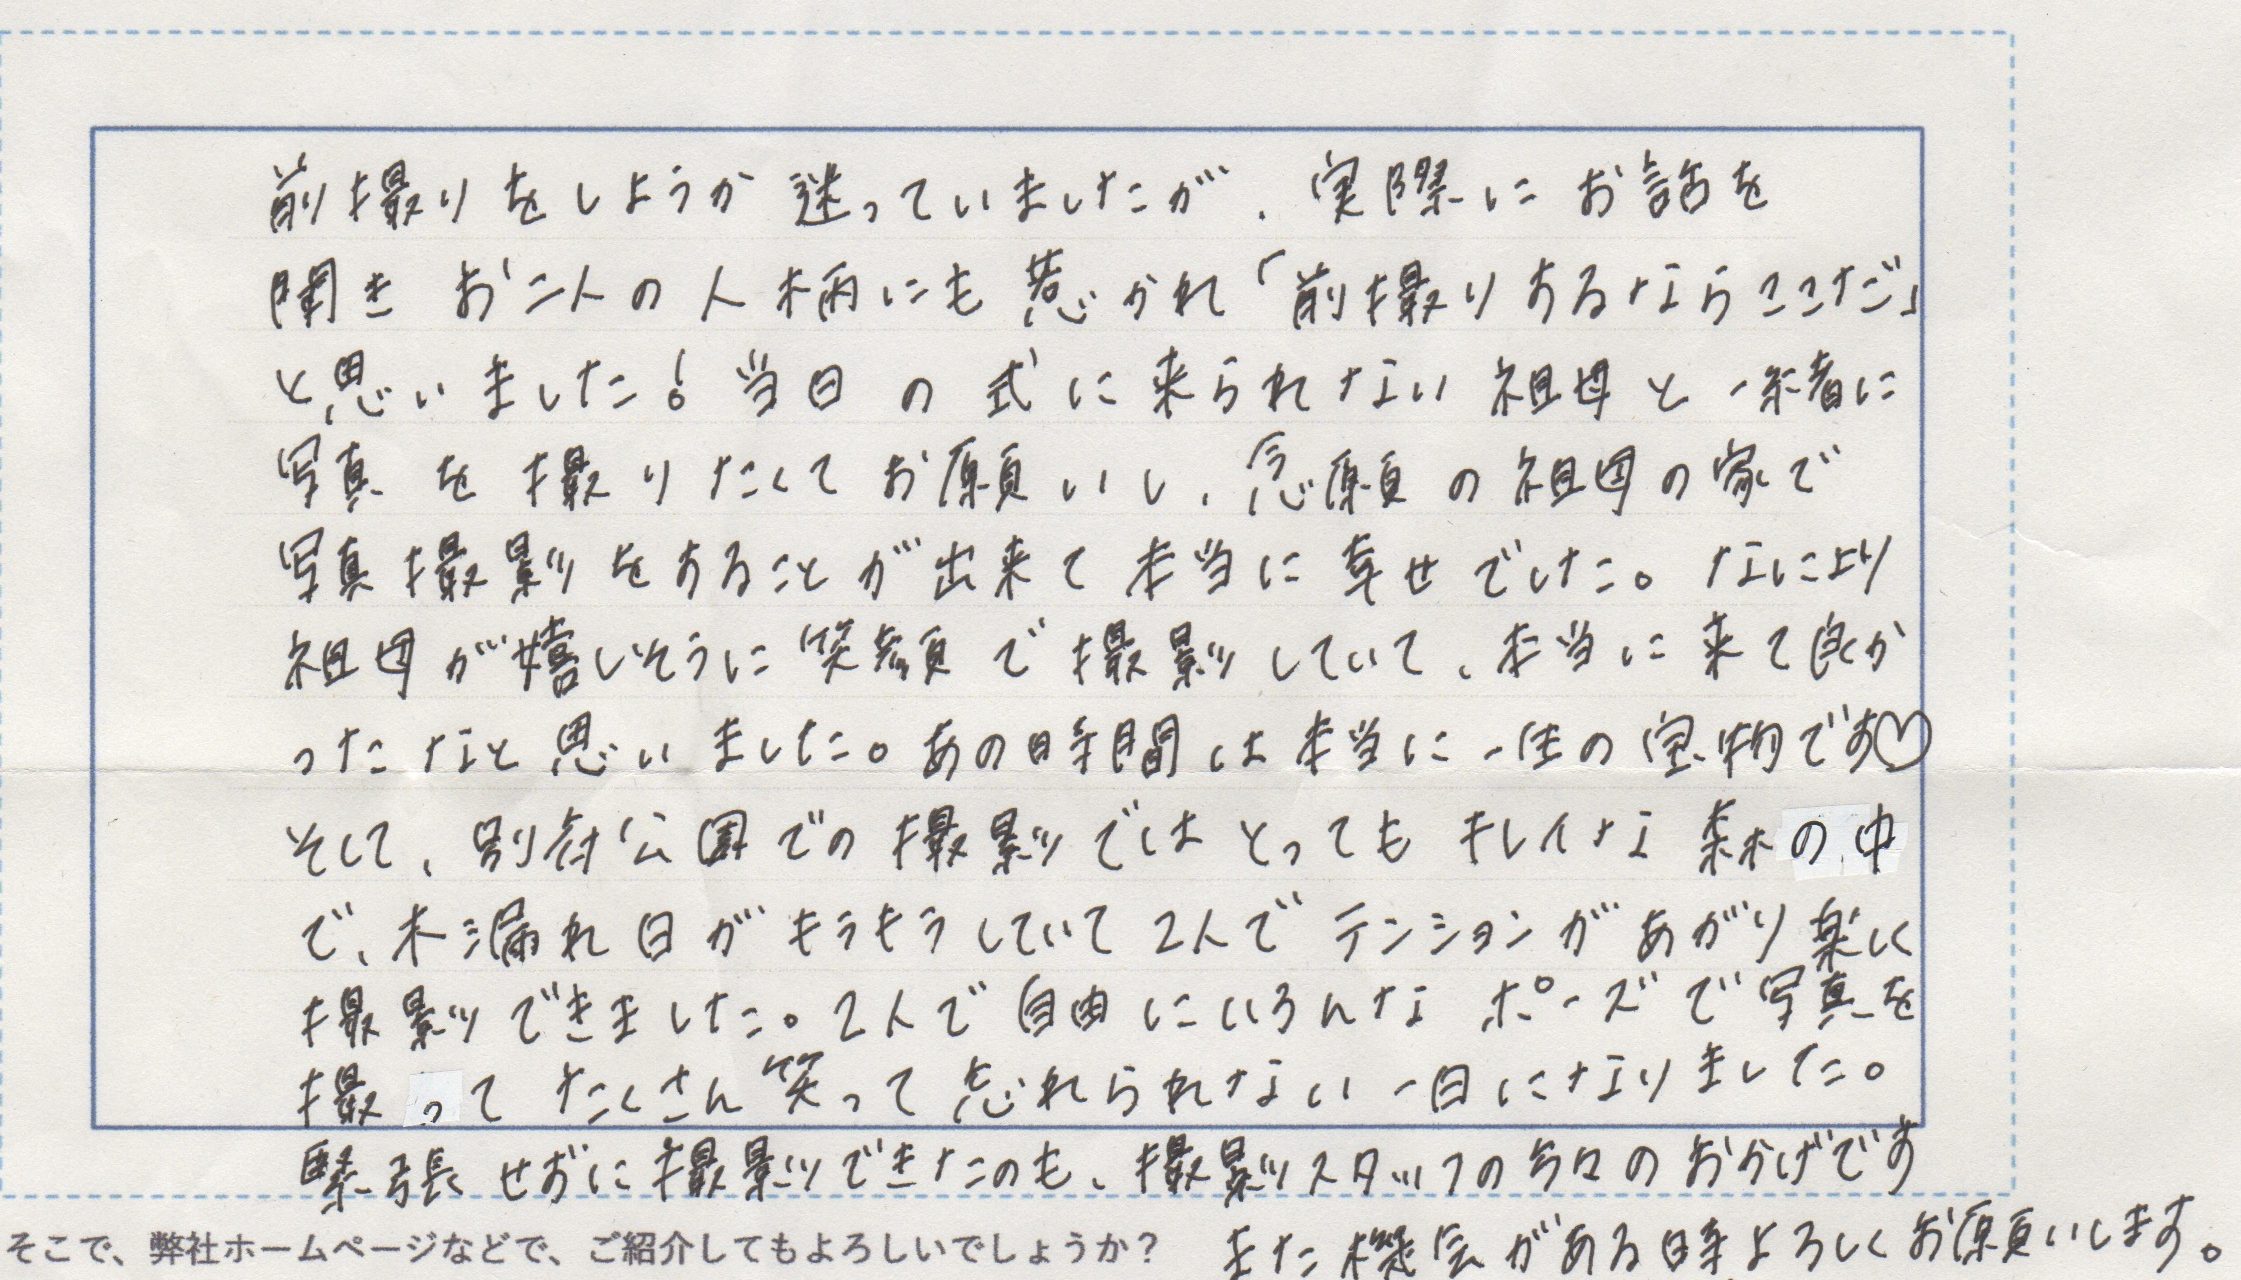 前撮りをしようか迷っていましたが、実際にお話を
聞き お二人の人柄にも惹かれ「前撮りするならここだ」
と思いました!当日の式に来られない祖母と一緒に
写真を撮りたくてお願いし、念願の祖母の家で
写真撮影をすることが出来て本当に幸せでした。なにより
祖母が嬉しそうに笑顔で撮影していて、本当に来て良か
ったなと思いました。あの時間は本当に一生の宝物です♡
そして、別府公園での撮影ではとってもキレイな森の中
で、木漏れ日がキラキラしていて2人でテンションがあがり楽しく
撮影できました。2人で自由にいろんなポーズで写真を
撮ってたくさん笑って忘れられない一日になりました。
緊張せずに撮影できたのも、撮影スタッフの方々のおかげです
また機会がある時よろしくお願いします。
そこで、弊社ホームページなどで、ご紹介してもよろしいでしょうか?